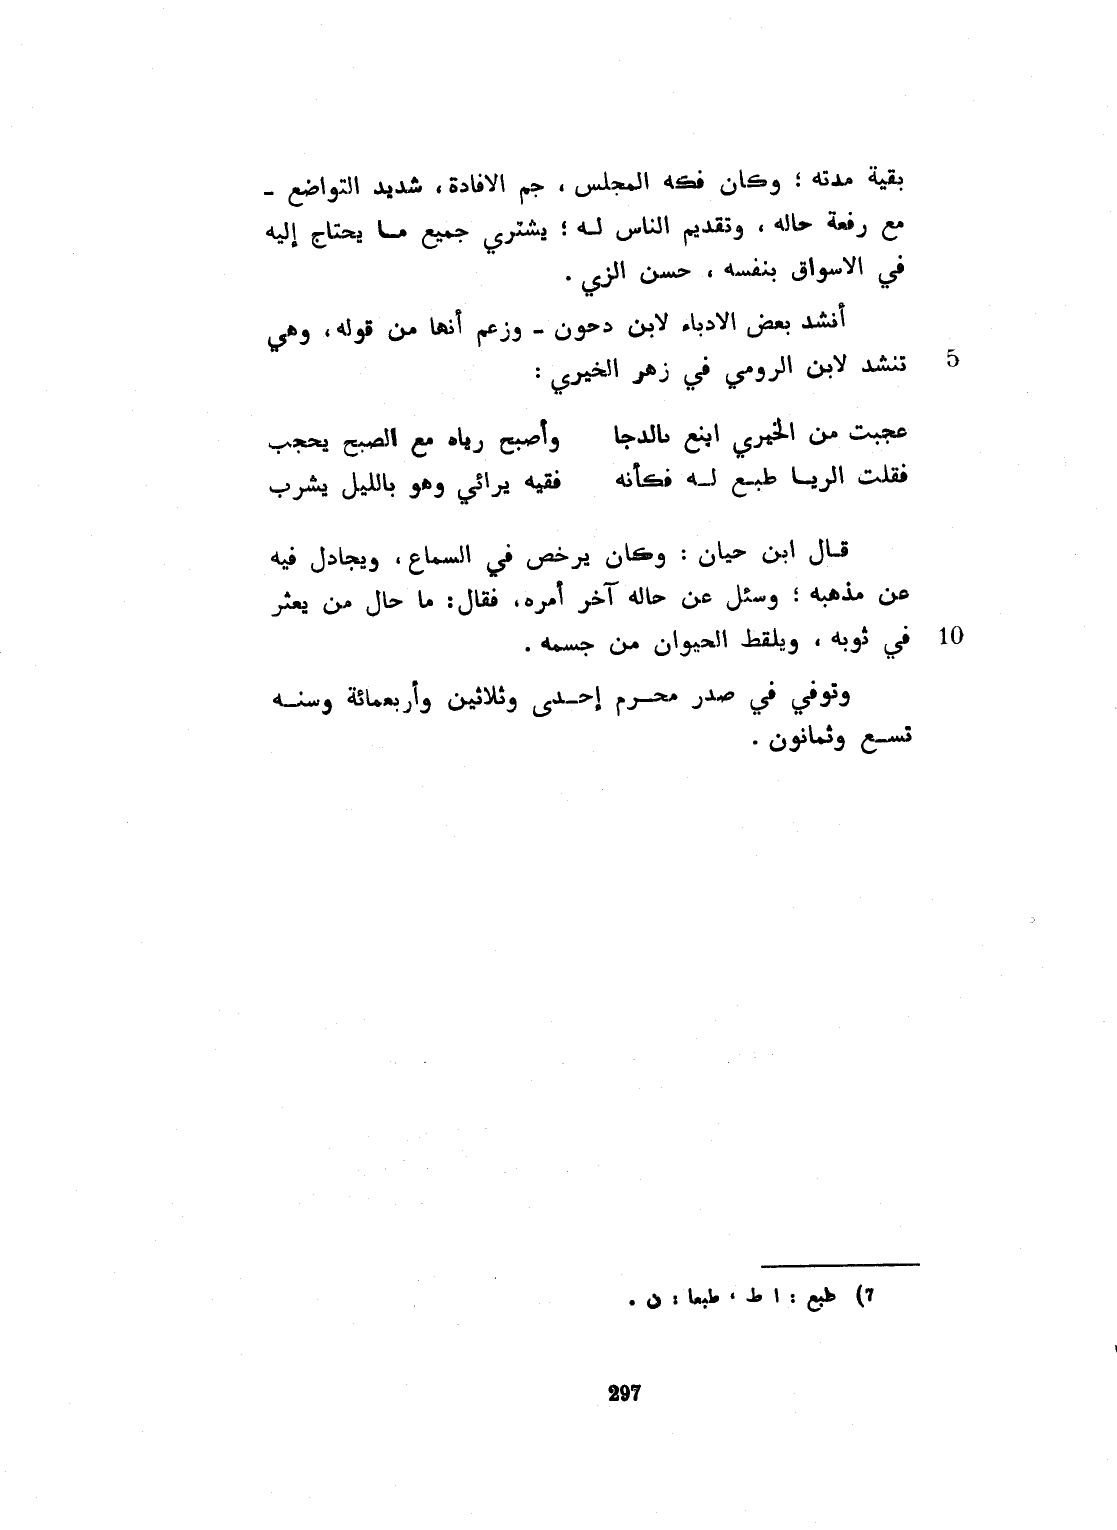 بقية مدته ؛ وكان فكه المجلس ، جم الافادة ، شديد التواضع -
مع رفعة حاله ، وتقديم الناس لـه ؛ يشتري جميع مـا يحتاج إليه
في الاسواق بنفسه ، حسن الزي .
أنشد بعض الادباء لابن دحون - وزعم أنها من قوله ، وهي
5 تنشد لابن الرومي في زهر الخيري :
عجبت من الخيري اينع بالدجا وأصبح رياه مع الصبح يحجب
فقلت الريـا طبـع لـه فكأنه فقيه يرائي وهو بالليل يشرب
قـال ابن حيان : وكان يرخص في السماع ، ويجادل فيه
عن مذهبه ؛ وسئل عن حاله آخر أمره ، فقال : ما حال من يعثر
10 في ثوبه ، ويلقط الحيوان من جسمه .
وتوفي في صدر محـرم إحـدى وثلاثين وأربعمائة وسنـه
تسـع وثمانون .
7) طبع : ا ط ، طبعا : ن .
297